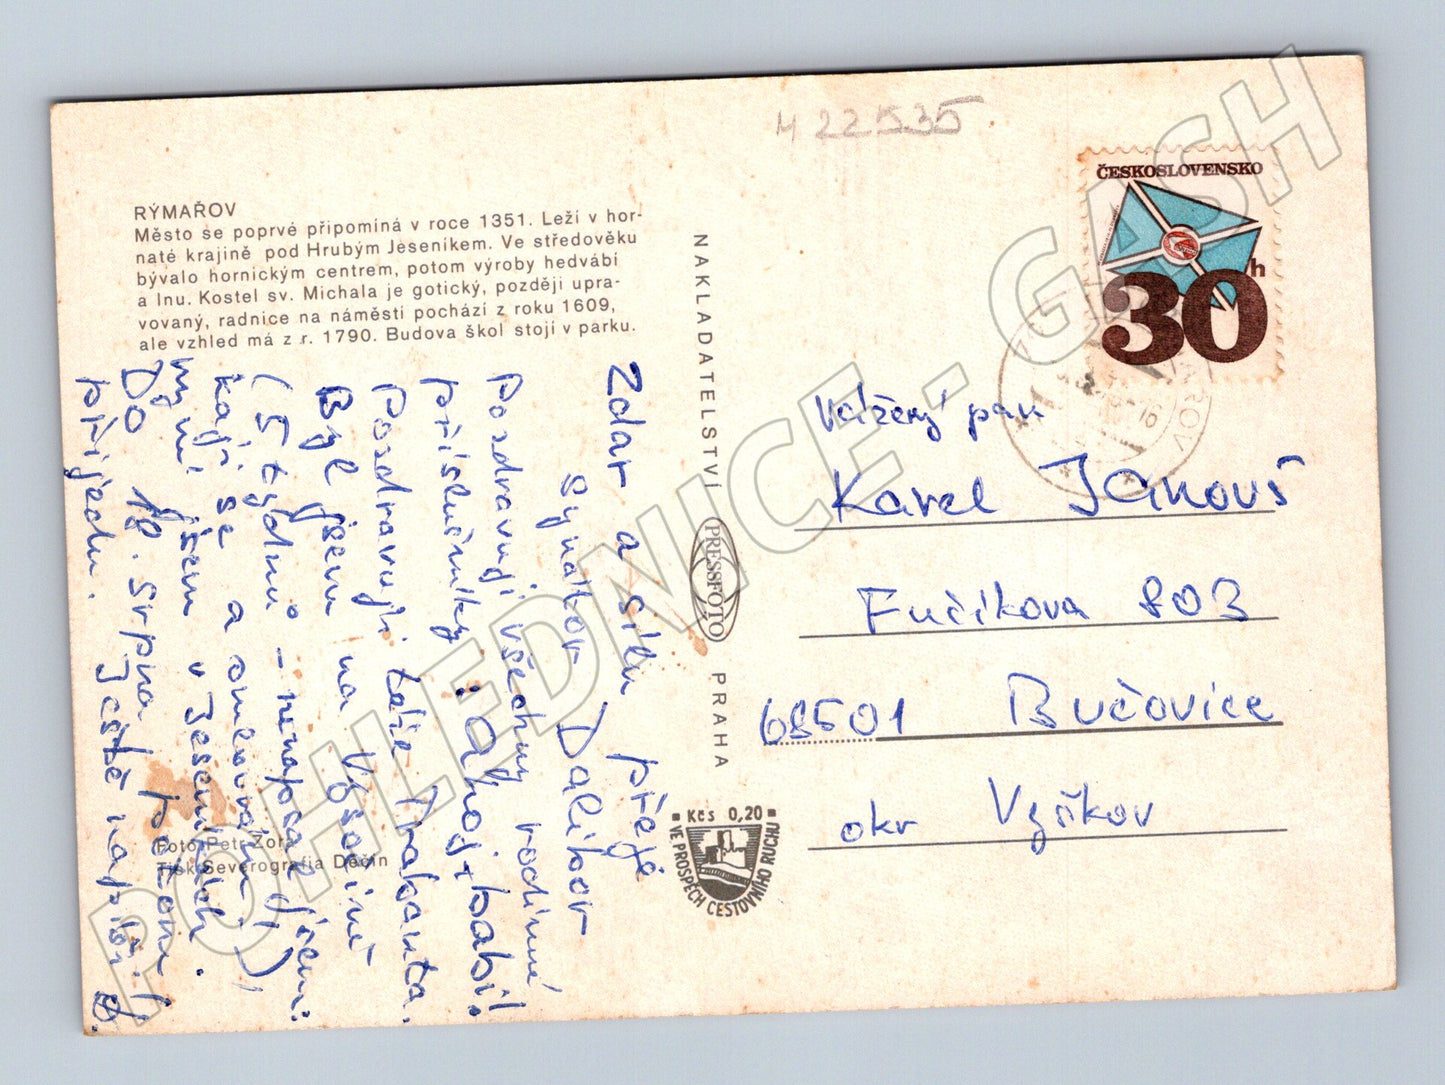 H 22535
RÝMAŘOV
Město se poprvé připomíná v roce 1351. Leží v hor-
naté krajině pod Hrubým Jeseníkem. Ve středověku
bývalo hornickým centrem, potom výroby hedvábí
a lnu. Kostel sv. Michala je gotický, později upra-
vovaný, radnice na náměstí pochází z roku 1609,
ale vzhled má z r. 1790. Budova škol stojí v parku.
Zdar a sílu přeje
synátor Dalibor
Pozdravuji všechny rodinné
příslušníky: Ahoj+babi!
Pozdravuji též Trabanta.
Byl jsem na Vysočině
(5 týdnů - nenapsal jsem:
kaji se a omlouvám!),
nyní jsem v Jeseníkách.
Do 18. srpna, potom
přijedu. Ještě napíši! D.
Foto Petr Zora
Tisk Severografia Děčín
NAKLADATELSTVÍ
PRESSFOTO
PRAHA
Kčs 0,20
VE PROSPĚCH CESTOVNÍHO RUCHU
ČESKOSLOVENSKO
30 h
Vážený pan
Karel Janouš
Fučíkova 803
68501 Bučovice
okr Vyškov
POHLEDNICE - GASH